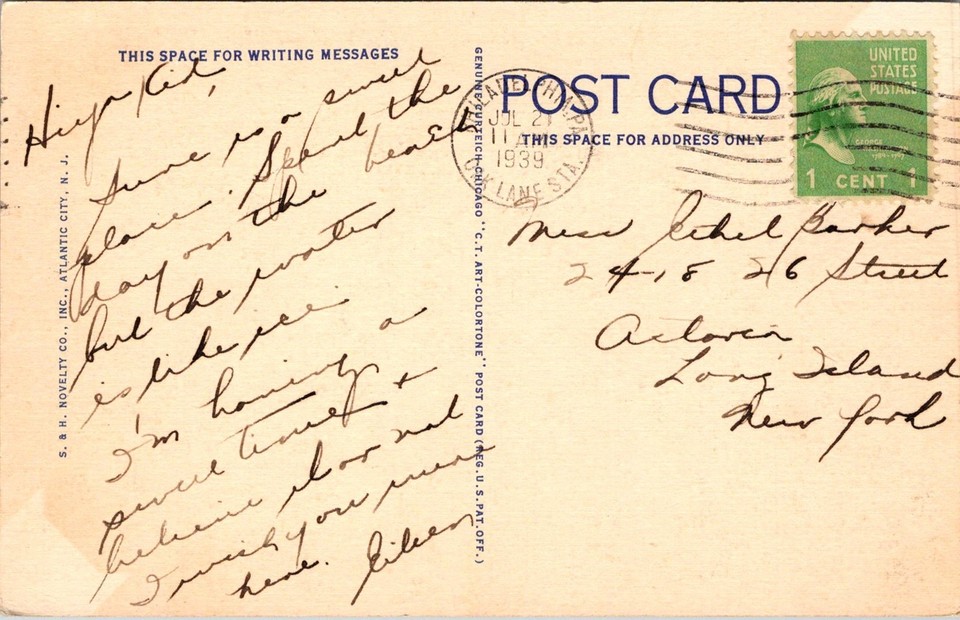 THIS SPACE FOR WRITING MESSAGES
Hiya Kid,
Sure is a sweet
place. Spent the
day on the beach
but the water
is like ice
I'm having a
swell time &
believe it or not
I wish you were
here. Eileen
S. & H. NOVELTY CO., INC., ATLANTIC CITY, N. J.
GENUINE CURTEICH-CHICAGO "C.T. ART-COLORTONE" POST CARD (REG. U.S. PAT. OFF.)
POST CARD
THIS SPACE FOR ADDRESS ONLY
PHILADELPHIA, PA.
JUL 21
11 A
1939
OAK LANE STA.
UNITED
STATES
POSTAGE
GEORGE
1 CENT 1
Miss Ethel Barker
24-18 26 Street
Astoria
Long Island
New York